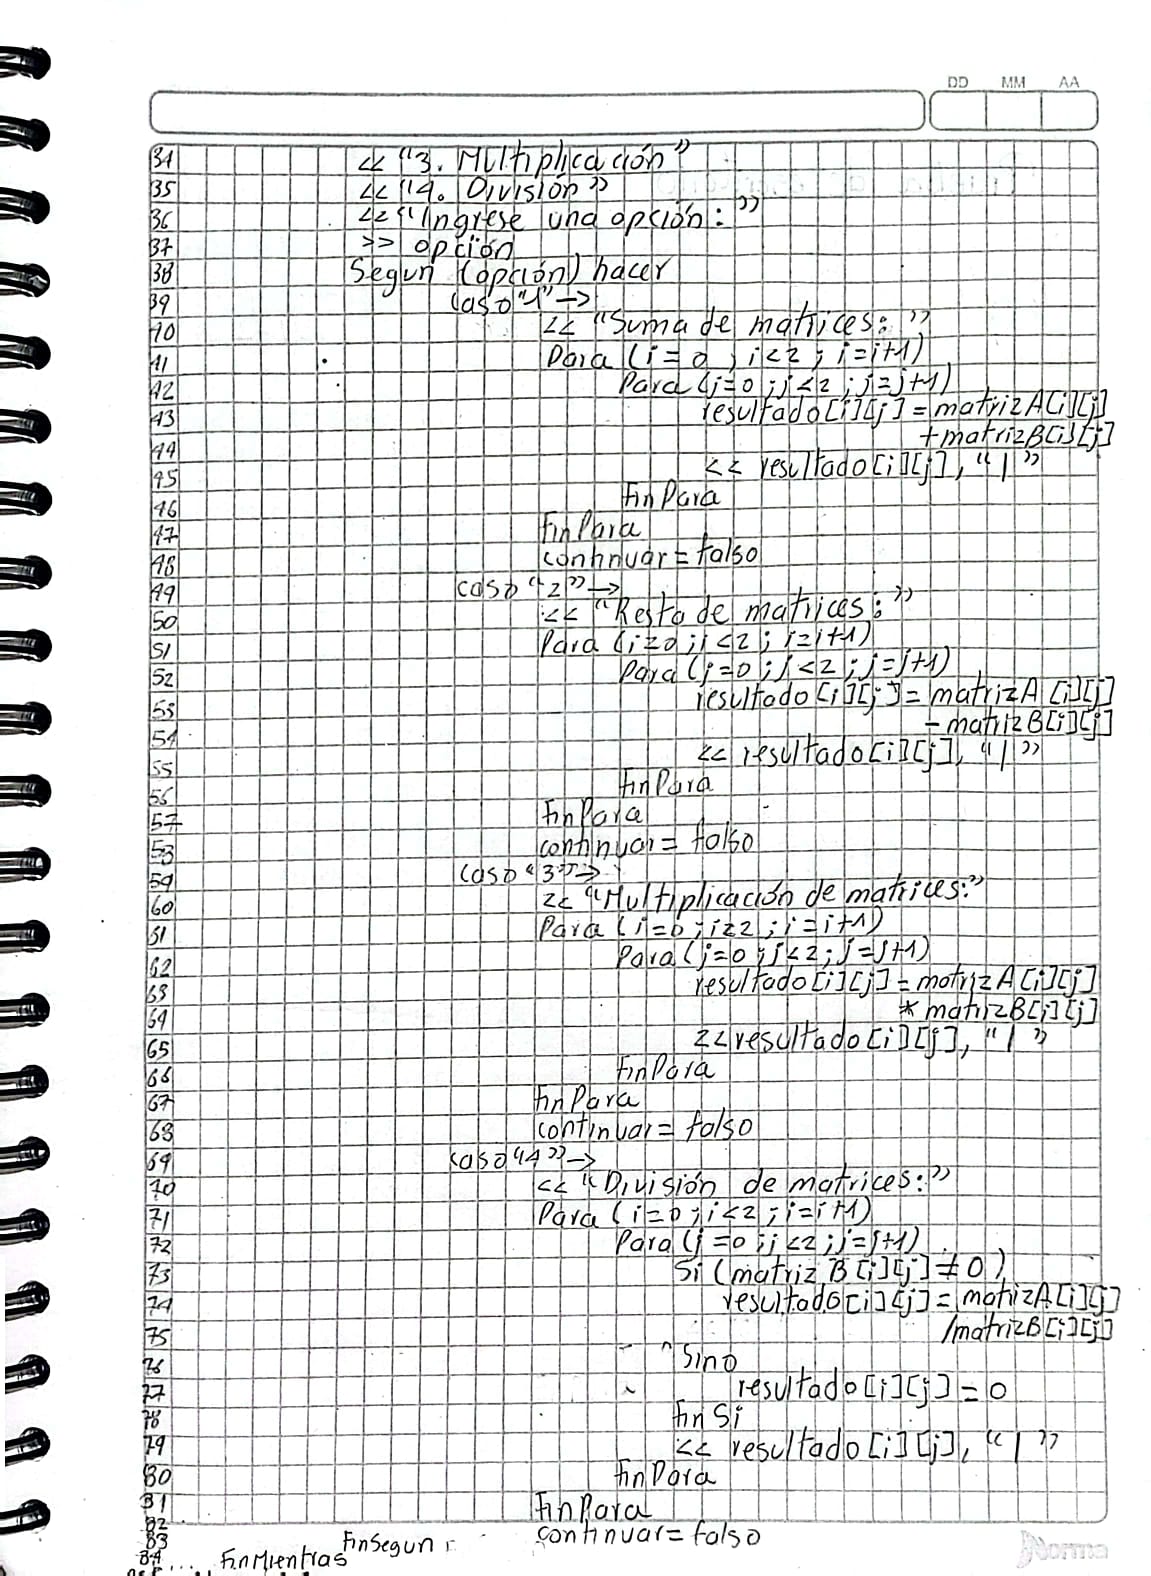 DD MM AA
34 << "3. Multiplicación"
35 << "4. División"
36 << "Ingrese una opción: "
37 >> opción
38 Segun (opción) hacer
39 caso "1" →
40 << "Suma de matrices: "
41 Para (i=0 ; i<2 ; i=i+1)
42 Para (j=0 ; j<2 ; j=j+1)
43 resultado[i][j] = matrizA[i][j]
44 + matrizB[i][j]
45 << resultado[i][j], " | "
46 FinPara
47 FinPara
48 continuar = falso
49 caso "2" →
50 << "Resta de matrices: "
51 Para (i=0 ; i<2 ; i=i+1)
52 Para (j=0 ; j<2 ; j=j+1)
53 resultado[i][j] = matrizA[i][j]
54 - matrizB[i][j]
55 << resultado[i][j], " | "
56 FinPara
57 FinPara
58 continuar = falso
59 caso "3" →
60 << "Multiplicación de matrices:"
61 Para (i=0 ; i<2 ; i=i+1)
62 Para (j=0 ; j<2 ; j=j+1)
63 resultado[i][j] = matrizA[i][j]
64 * matrizB[i][j]
65 << resultado[i][j], " | "
66 FinPara
67 FinPara
68 continuar = falso
69 caso "4" →
70 << "División de matrices:"
71 Para (i=0 ; i<2 ; i=i+1)
72 Para (j=0 ; j<2 ; j=j+1)
73 Si (matriz B[i][j] ≠ 0)
74 resultado[i][j] = matrizA[i][j]
75 /matrizB[i][j]
76 Sino
77 resultado[i][j] = 0
78 Fin Si
79 << resultado[i][j], " | "
80 FinPara
81 FinPara
82 continuar = falso
83 FinSegun
84 ... FinMientras
Norma